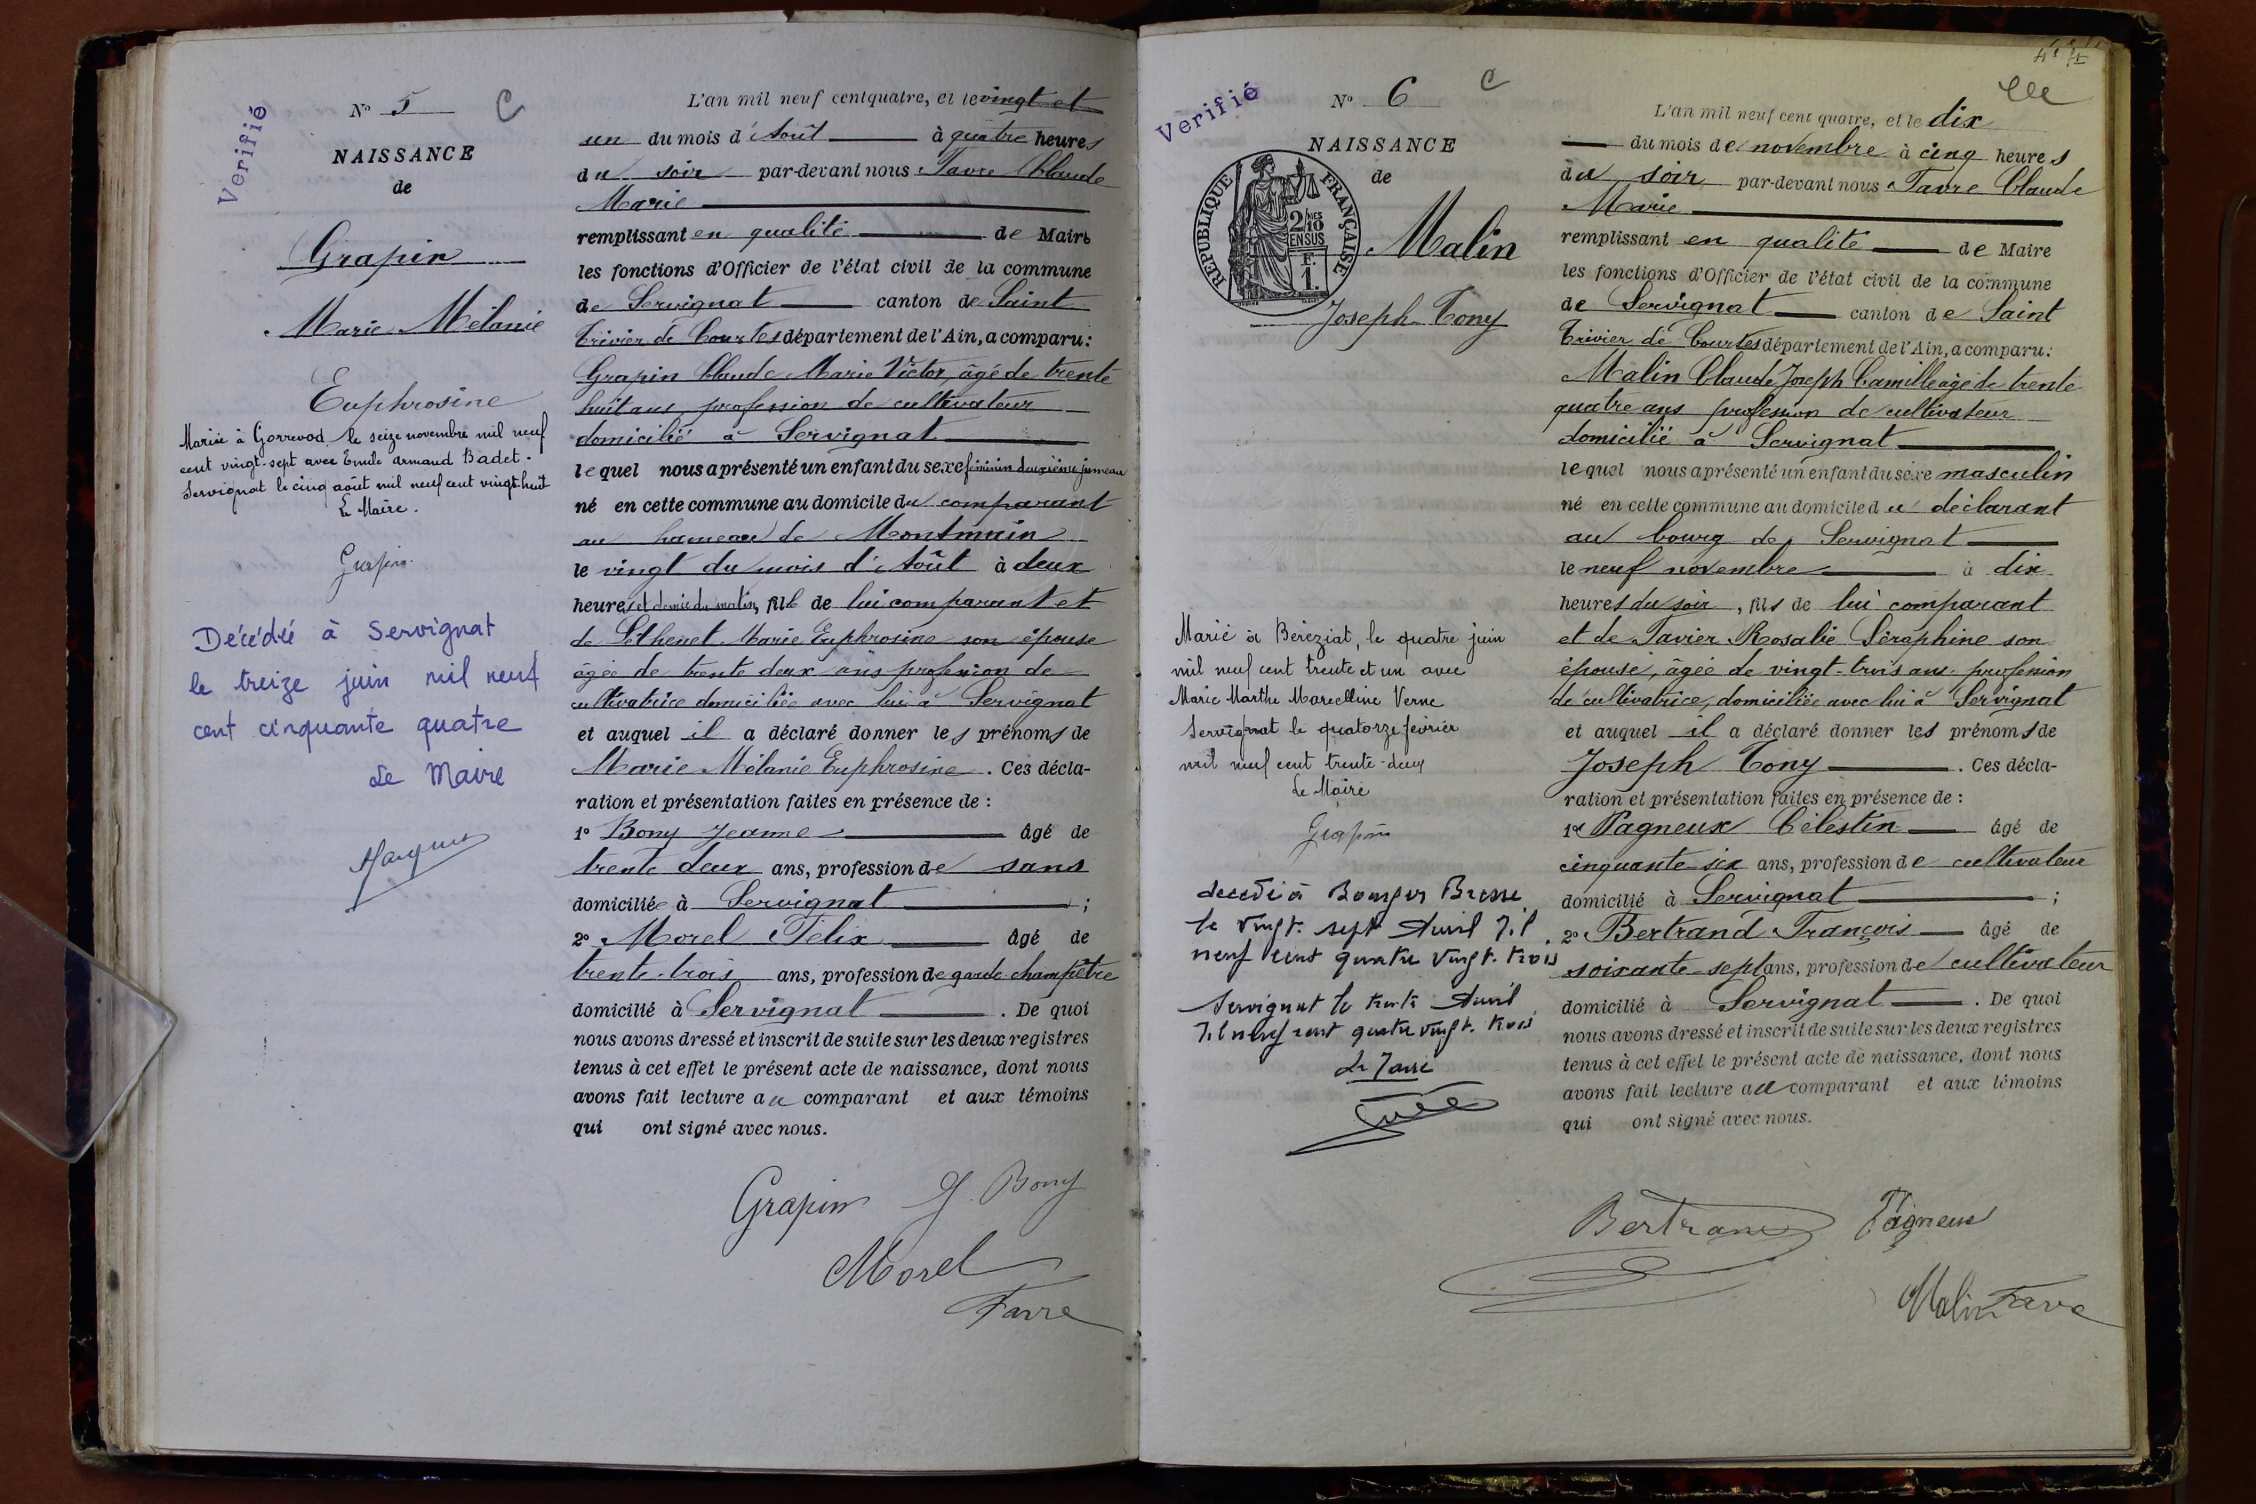 Verifié
N° 5
C
NAISSANCE
de
Grapin
Marie Mélanie
Euphrosine
Mariée à Gorrevod le seize novembre mil neuf
cent vingt-sept avec Emile Armand Badet.
Servignat le cinq août mil neuf cent vingt-huit
Le Maire.
Grapin
Décédée à Servignat
le treize juin mil neuf
cent cinquante quatre
Le Maire
L'an mil neuf cent quatre, et le vingt et
un du mois d'Août à quatre heures
du soir par-devant nous Favre Claude
Marie
remplissant en qualité de Maire
les fonctions d'Officier de l'état civil de la commune
de Servignat canton de Saint
Trivier de Courtes département de l'Ain, a comparu:
Grapin Claude Marie Victor, âgé de trente
huit ans, profession de cultivateur
domicilié à Servignat
lequel nous a présenté un enfant du sexe féminin deuxième jumeau
né en cette commune au domicile du comparant
au hameau de Montmain
le vingt du mois d'Août à deux
heures et demie du matin, fill de lui comparant et
de Marie Euphrosine son épouse
âgée de trente deux ans profession de
cultivatrice domiciliée avec lui à Servignat
et auquel il a déclaré donner les prénoms de
Marie Mélanie Euphrosine. Ces décla-
ration et présentation faites en présence de :
1° Bony Jeanne âgé de
trente deux ans, profession de sans
domiciliée à Servignat ;
2° Morel Félix âgé de
trente-trois ans, profession de garde champêtre
domicilié à Servignat. De quoi
nous avons dressé et inscrit de suite sur les deux registres
tenus à cet effet le présent acte de naissance, dont nous
avons fait lecture au comparant et aux témoins
qui ont signé avec nous.
Grapin J. Bony
Morel
Favre
Verifié
N° 6
C
NAISSANCE
de
RÉPUBLIQUE FRANÇAISE
2/10 EN SUS
1 F.
Malin
Joseph Tony
Marié à Béréziat, le quatre juin
mil neuf cent trente et un avec
Marie Marthe Marcelline Verne
Servignat le quatorze février
mil neuf cent trente-deux
Le Maire
Grapin
décédé à Bourg en Bresse
le vingt-sept Avril Mil
neuf cent quatre vingt-trois
Servignat le trente Avril
Mil neuf cent quatre vingt-trois
Le Maire
L'an mil neuf cent quatre, et le dix
du mois de novembre à cinq heures
du soir par-devant nous Favre Claude
Marie
remplissant en qualité de Maire
les fonctions d'Officier de l'état civil de la commune
de Servignat canton de Saint
Trivier de Courtes département de l'Ain, a comparu:
Malin Claude Joseph Camille âgé de trente
quatre ans profession de cultivateur
domicilié à Servignat
lequel nous a présenté un enfant du sexe masculin
né en cette commune au domicile du déclarant
au bourg de Servignat
le neuf novembre à dix
heures du soir, fils de lui comparant
et de Favier Rosalie Séraphine son
épouse, âgée de vingt-trois ans profession
de cultivatrice, domiciliée avec lui à Servignat
et auquel il a déclaré donner les prénoms de
Joseph Tony. Ces décla-
ration et présentation faites en présence de :
1° Pagneux Célestin âgé de
cinquante-six ans, profession de cultivateur
domicilié à Servignat ;
2° Bertrand François âgé de
soixante-sept ans, profession de cultivateur
domicilié à Servignat. De quoi
nous avons dressé et inscrit de suite sur les deux registres
tenus à cet effet le présent acte de naissance, dont nous
avons fait lecture au comparant et aux témoins
qui ont signé avec nous.
Bertrand Pagneux
Malin Favre